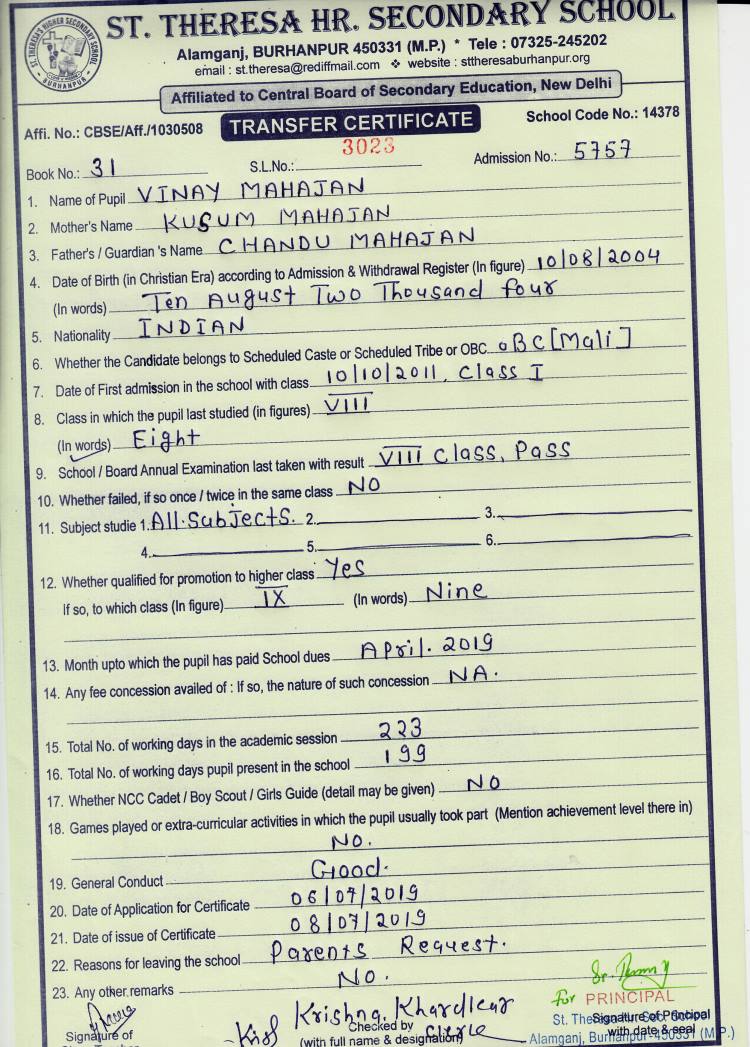 ST. THERESA HR. SECONDARY SCHOOL
ST. THERESA'S HIGHER SECONDARY SCHOOL
BURHANPUR
Alamganj, BURHANPUR 450331 (M.P.) * Tele : 07325-245202
email : st.theresa@rediffmail.com ❖ website : sttheresaburhanpur.org
Affiliated to Central Board of Secondary Education, New Delhi
Affi. No.: CBSE/Aff./1030508 TRANSFER CERTIFICATE School Code No.: 14378
Book No.: 31 S.L.No.: 3023 Admission No.: 5757
1. Name of Pupil VINAY MAHAJAN
2. Mother's Name KUSUM MAHAJAN
3. Father's / Guardian 's Name CHANDU MAHAJAN
4. Date of Birth (in Christian Era) according to Admission & Withdrawal Register (In figure) 10/08/2004
(In words) Ten August Two Thousand four
5. Nationality INDIAN
6. Whether the Candidate belongs to Scheduled Caste or Scheduled Tribe or OBC OBC [Mali]
7. Date of First admission in the school with class 10/10/2011, Class I
8. Class in which the pupil last studied (in figures) VIII
(In words) Eight
9. School / Board Annual Examination last taken with result VIII Class, Pass
10. Whether failed, if so once / twice in the same class NO
11. Subject studie 1. All Subjects. 2. 3.
4. 5. 6.
12. Whether qualified for promotion to higher class Yes
If so, to which class (In figure) IX (In words) Nine
13. Month upto which the pupil has paid School dues April. 2019
14. Any fee concession availed of : If so, the nature of such concession NA.
15. Total No. of working days in the academic session 223
16. Total No. of working days pupil present in the school 199
17. Whether NCC Cadet / Boy Scout / Girls Guide (detail may be given) NO
18. Games played or extra-curricular activities in which the pupil usually took part (Mention achievement level there in)
No.
19. General Conduct Good.
20. Date of Application for Certificate 06/07/2019
21. Date of issue of Certificate 08/07/2019
22. Reasons for leaving the school Parents Request.
23. Any other remarks No.
Krishna Khardkar
For PRINCIPAL
Signature of Checked by Clerk St. Signature of Principal
(with full name & designation) with date & seal
Alamganj, Burhanpur-450331 (M.P.)